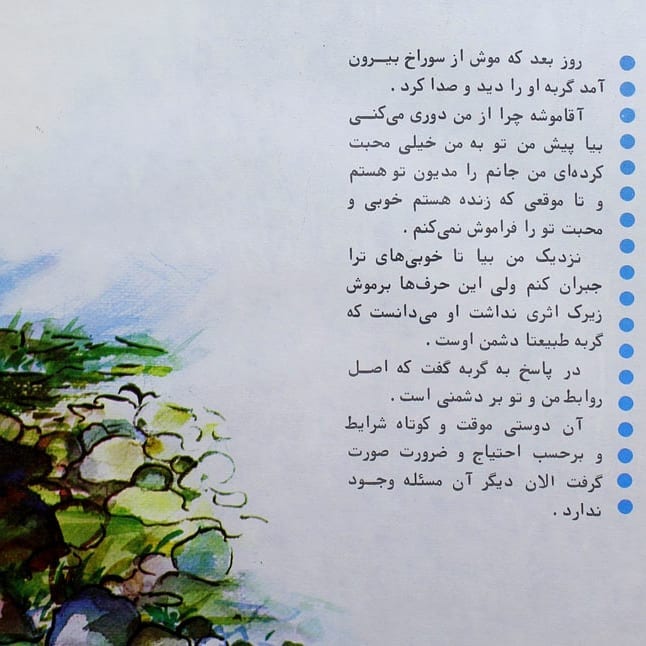 روز بعد که موش از سوراخ بیرون
آمد گربه او را دید و صدا کرد .
آقاموشه چرا از من دوری می‌کنی
بیا پیش من تو به من خیلی محبت
کرده‌ای من جانم را مدیون تو هستم
و تا موقعی که زنده هستم خوبی و
محبت تو را فراموش نمی‌کنم .
نزدیک من بیا تا خوبی‌های ترا
جبران کنم ولی این حرف‌ها برموش
زیرک اثری نداشت او می‌دانست که
گربه طبیعتا دشمن اوست .
در پاسخ به گربه گفت که اصل
روابط من و تو بر دشمنی است .
آن دوستی موقت و کوتاه شرایط
و برحسب احتیاج و ضرورت صورت
گرفت الان دیگر آن مسئله وجود
ندارد .